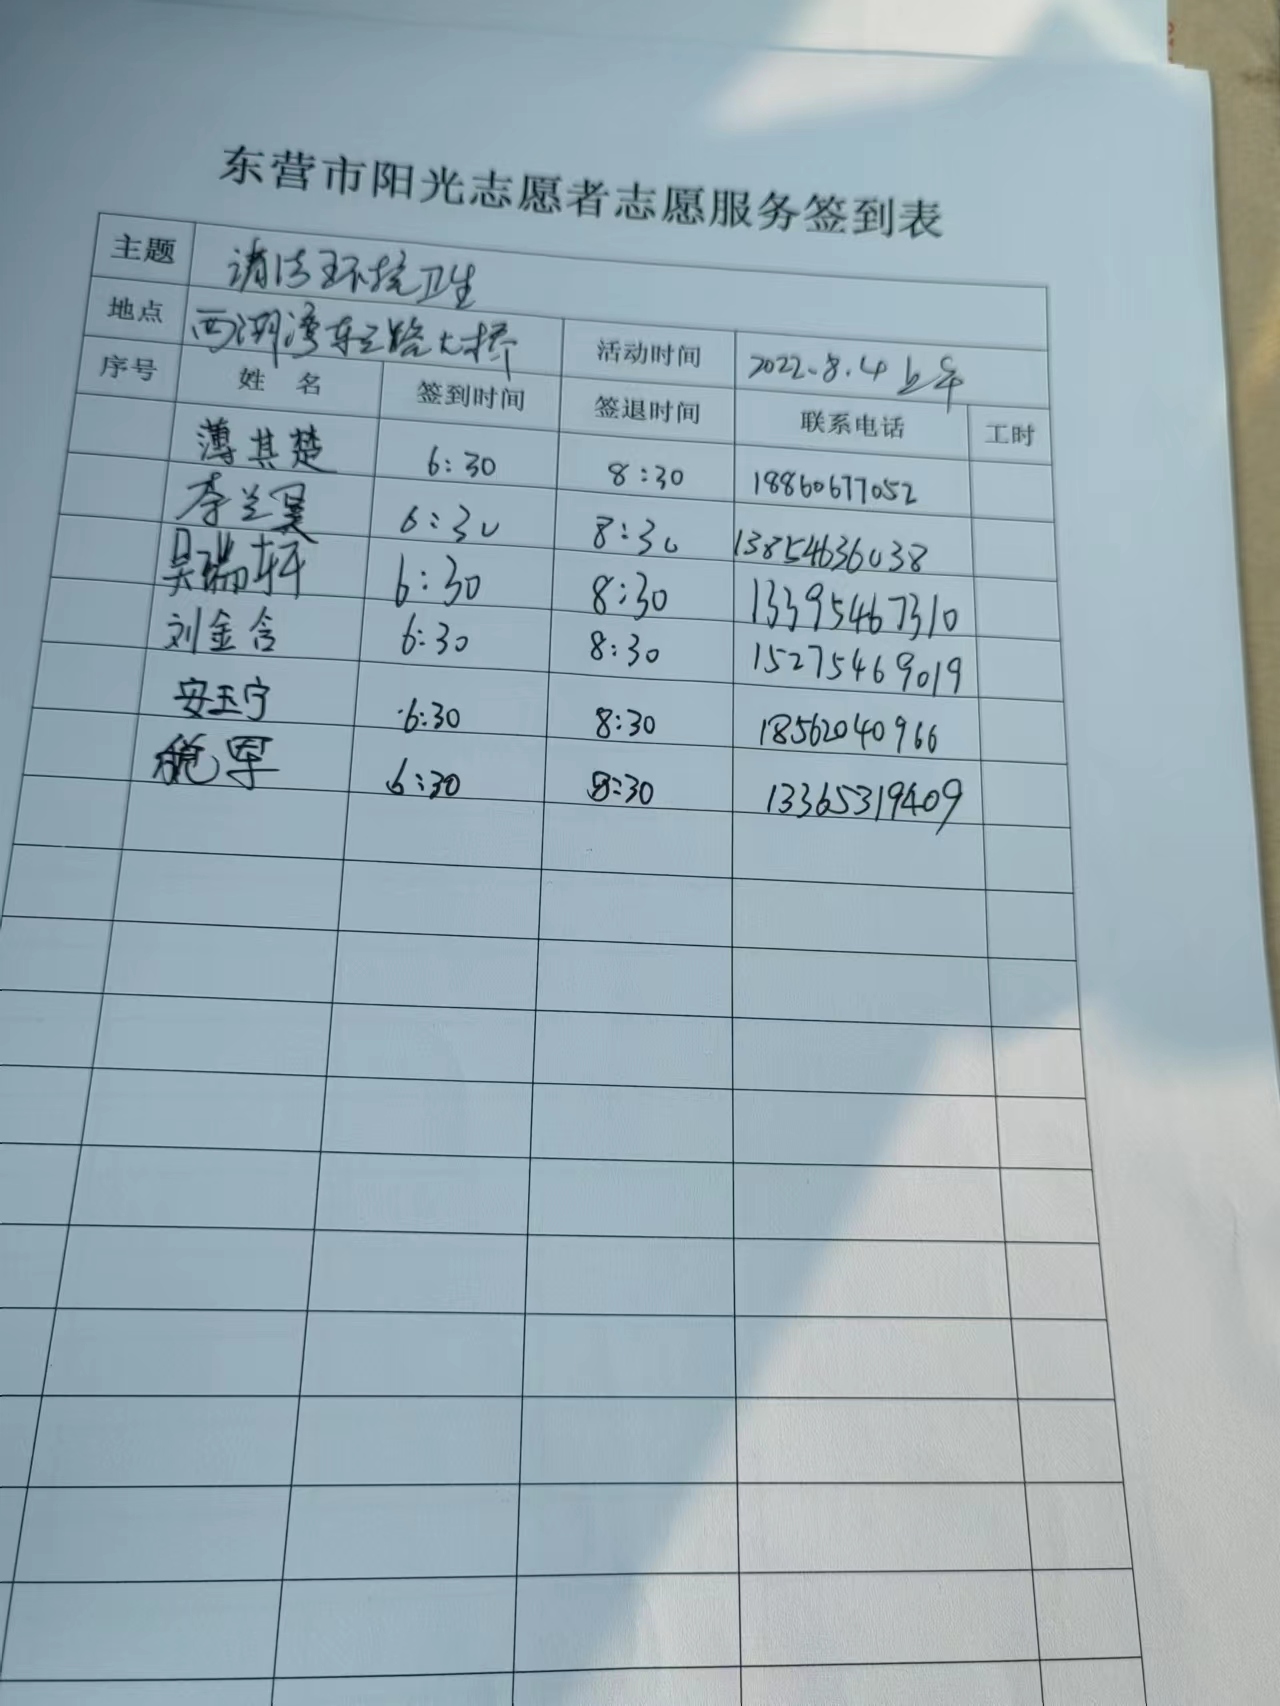 东营市阳光志愿者志愿服务签到表
主题 清洁环境卫生
地点 西湖湾东三路大桥 活动时间 2022.8.4上午
序号 姓名 签到时间 签退时间 联系电话 工时
薄其楚 6:30 8:30 18860677052
李兰昊 6:30 8:30 13854636038
吴瑞轩 6:30 8:30 13395467310
刘金含 6:30 8:30 15275469019
安玉宁 6:30 8:30 18562040966
军 6:30 8:30 13365319409